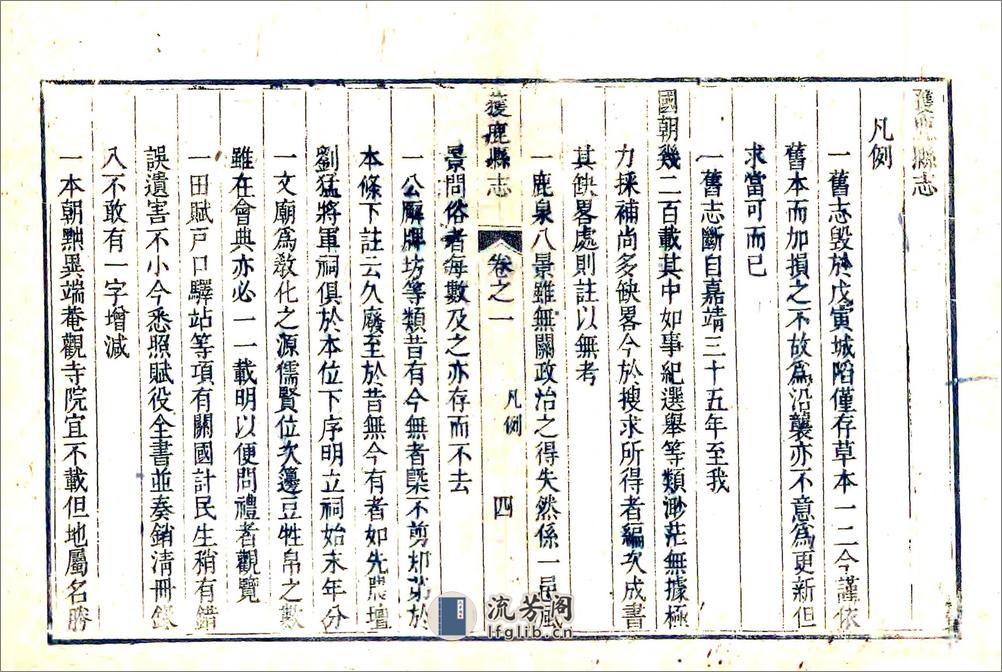 獲鹿縣志
凡例
一舊志毀於戊寅城陷僅存草本一二今謹依
舊本而加損之不故爲沿襲亦不意爲更新但
求當可而已
一舊志斷自嘉靖三十五年至我
國朝幾二百載其中如事紀選舉等類渺茫無據極
力採補尚多缺畧今於搜求所得者編次成書
其缺畧處則註以無考
一鹿泉八景雖無關政治之得失然係一邑風
獲鹿縣志 卷之一 凡例 四
景問俗者每數及之亦存而不去
一公廨牌坊等類昔有今無者槩不剪却第於
本條下註云久廢至於昔無今有者如先農壇
劉猛將軍祠俱於本位下序明立祠始末年分
一文廟爲敎化之源儒賢位次籩豆牲帛之數
雖在會典亦必一一載明以便問禮者觀覽
一田賦戸口驛站等項有關國計民生稍有錯
誤遺害不小今悉照賦役全書並奏銷淸冊錄
入不敢有一字增減
一本朝黜異端菴觀寺院宜不載但地屬名勝
流芳阁
lfglib.cn